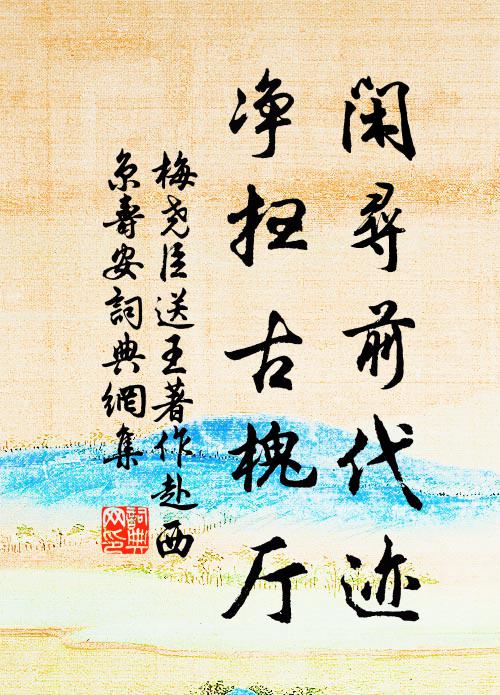 闲寻前代迹
净扫古槐厅
梅尧臣送王著作赴西
京寿安詞典網集
詞典网印